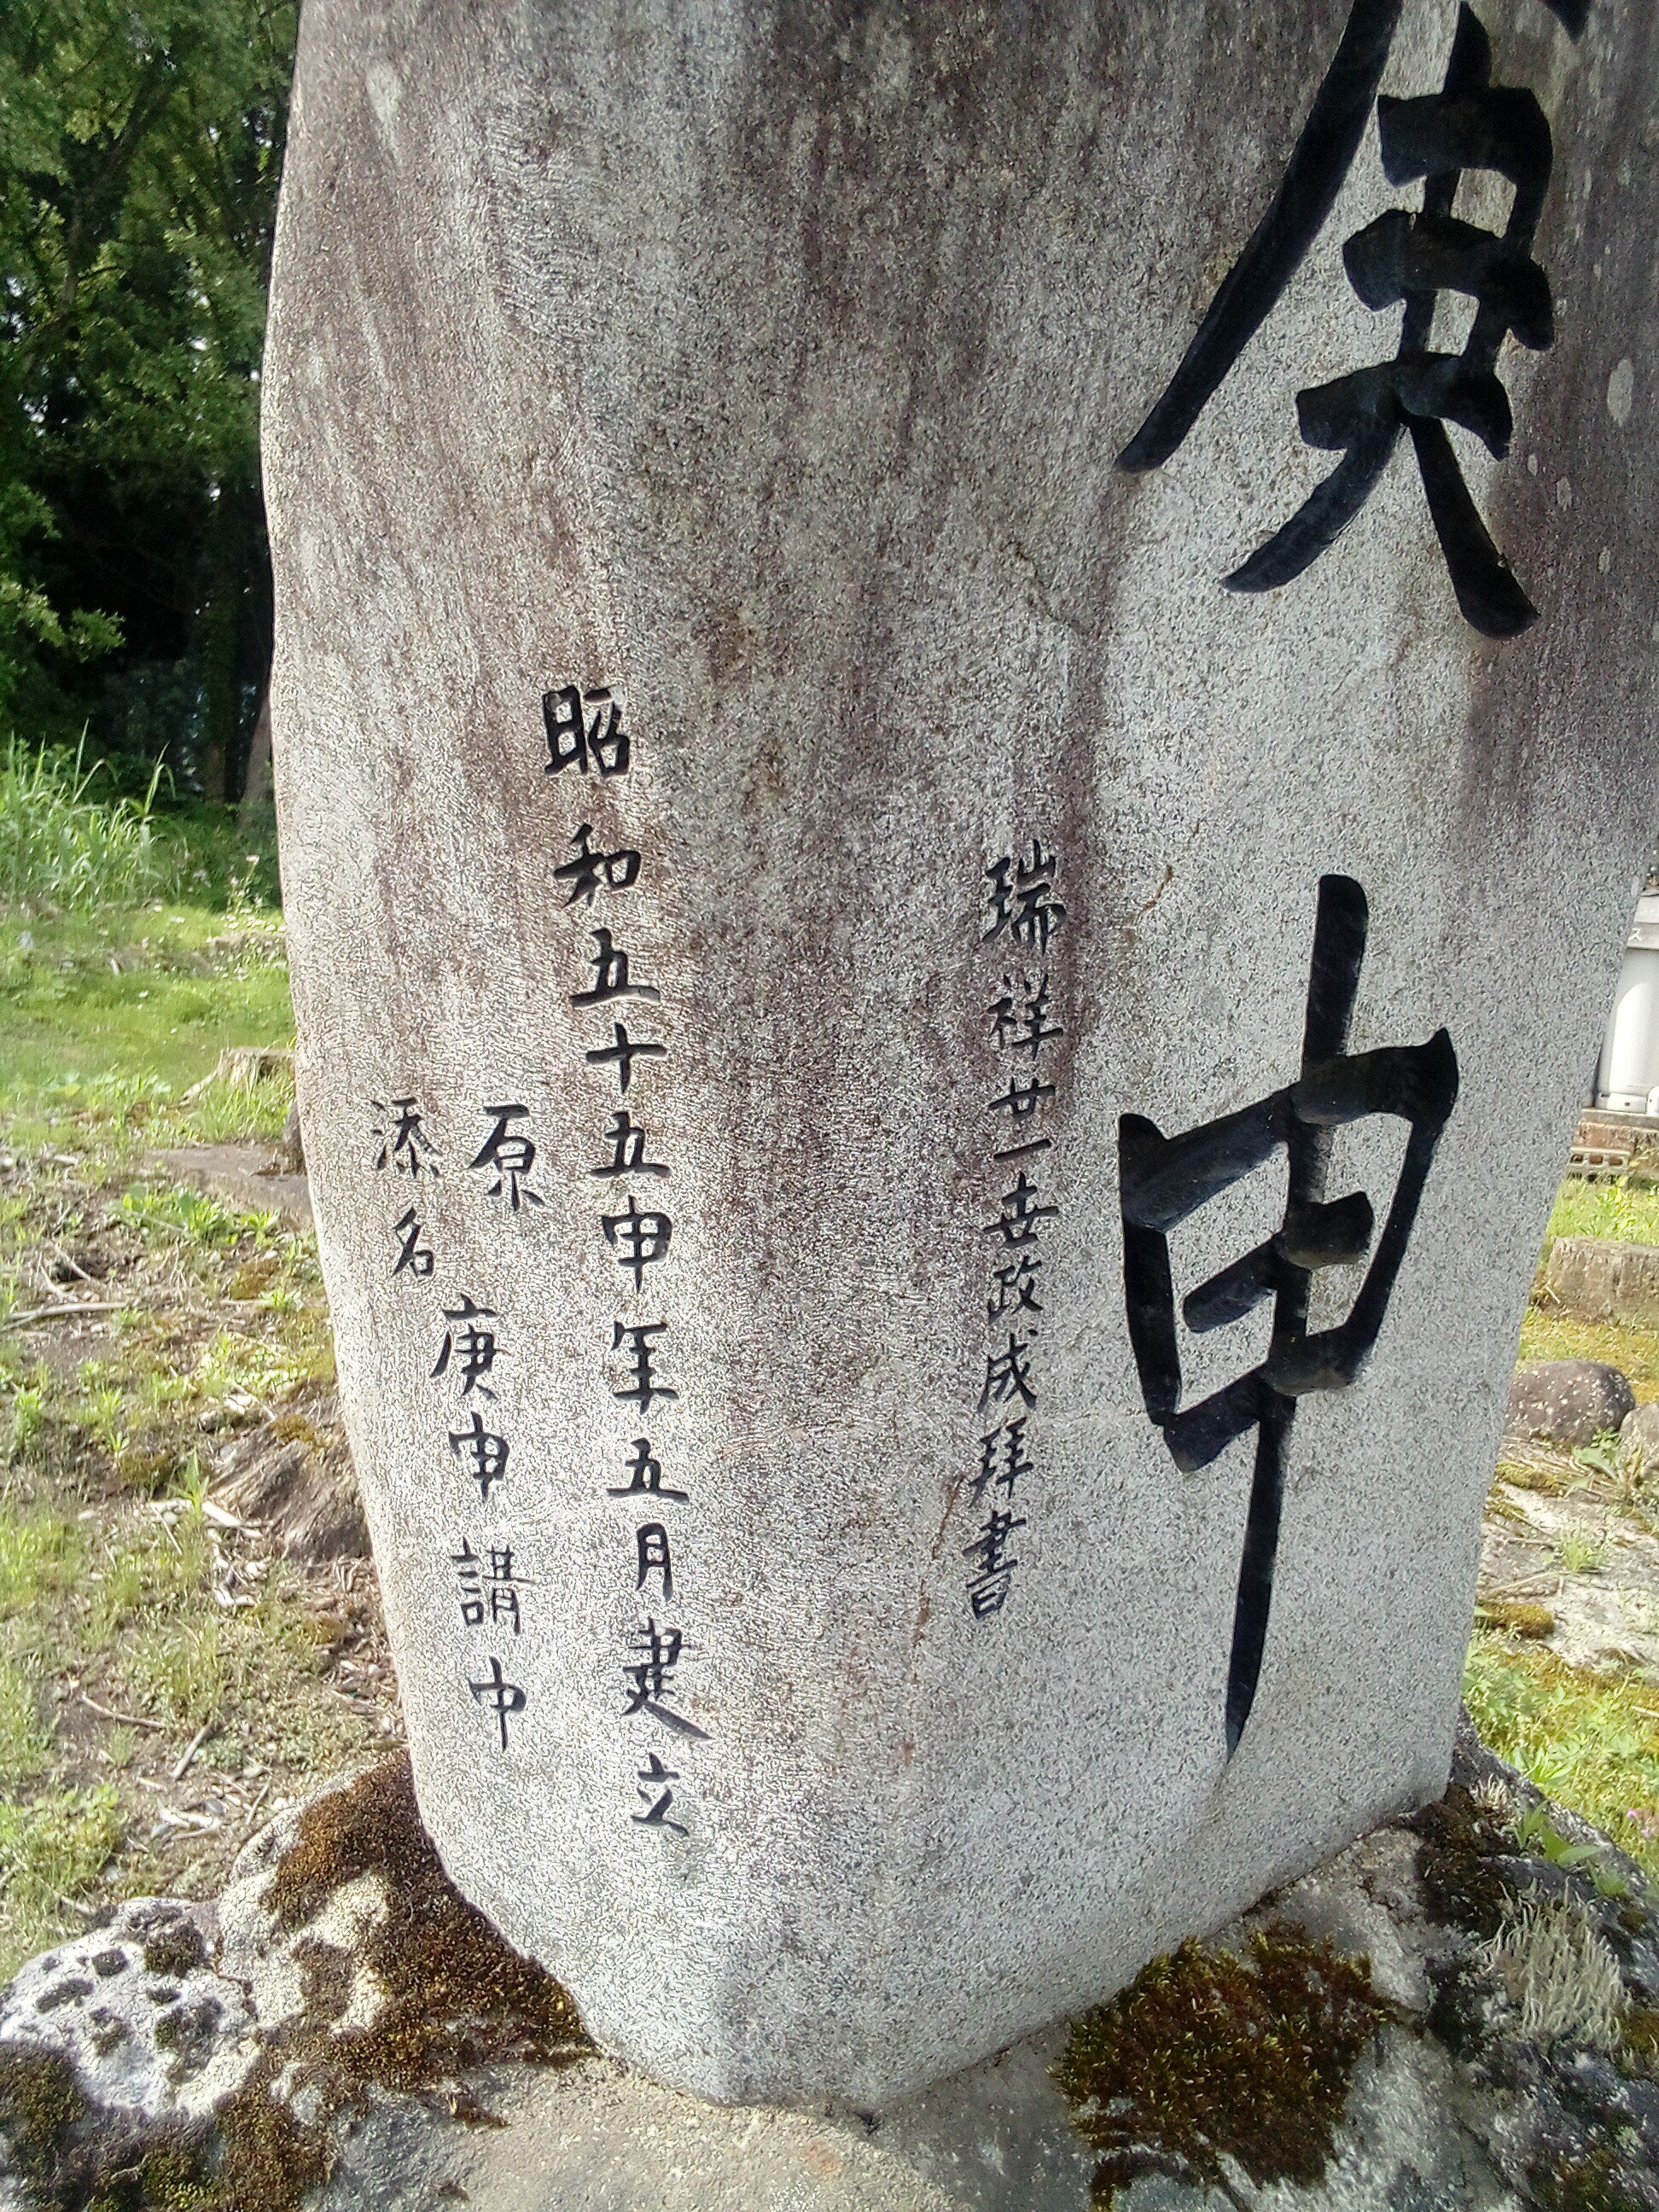 庚申
瑞祥廿一世政成拝書
昭和五十五申年五月建立
原
添名
庚申講中
ス